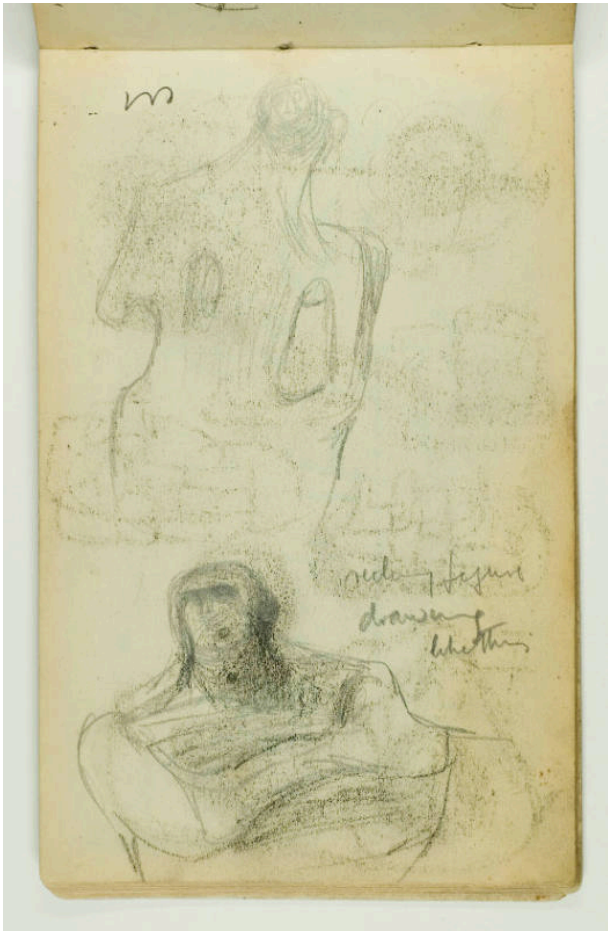 reclining figure
drawing
like this